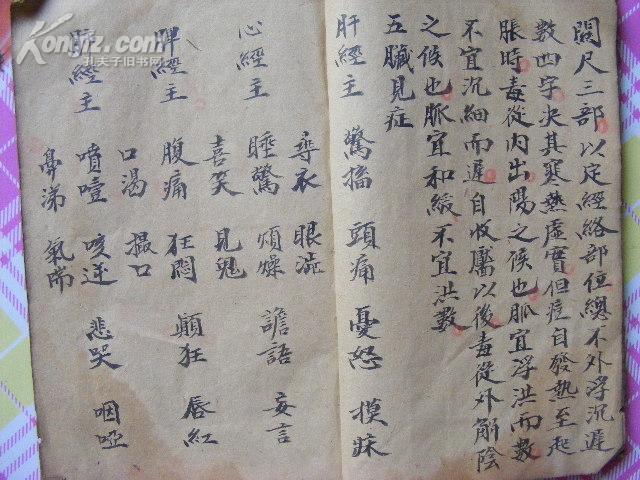 關尺三部以定經絡部位總不外浮沉遲
數四字決其寒熱虛實但痘自發熱至起
脹時毒從內出陽之候也脈宜浮洪而數
不宜沉細而遲自收靨以後毒從外解陰
之候也脈宜和緩不宜洪數
五臟見症
肝經主 驚搐 頭痛 憂怒 摸床
尋衣 眼澁
心經主 睡驚 煩燥 譫語 妄言
喜笑 見鬼
脾經主 腹痛 狂悶 顛狂 唇紅
口渴 撮口
肺經主 噴嚏 咳逆 悲哭 咽啞
鼻涕 氣喘
Kongfz.com
孔夫子旧书网